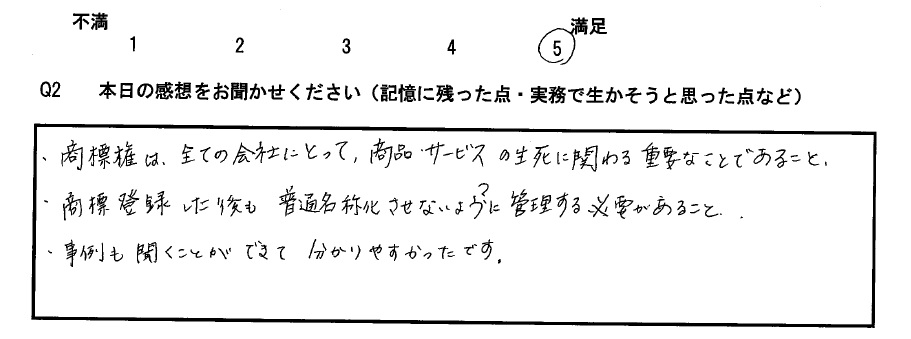 不満 満足
1 2 3 4 5
Q2 本日の感想をお聞かせください(記憶に残った点・実務で生かそうと思った点など)
・商標権は、全ての会社にとって、商品・サービスの生死に関わる重要なことであること、
・商標登録した後も 普通名称化させないように管理する必要があること.
・事例も聞くことができて 分かりやすかったです。